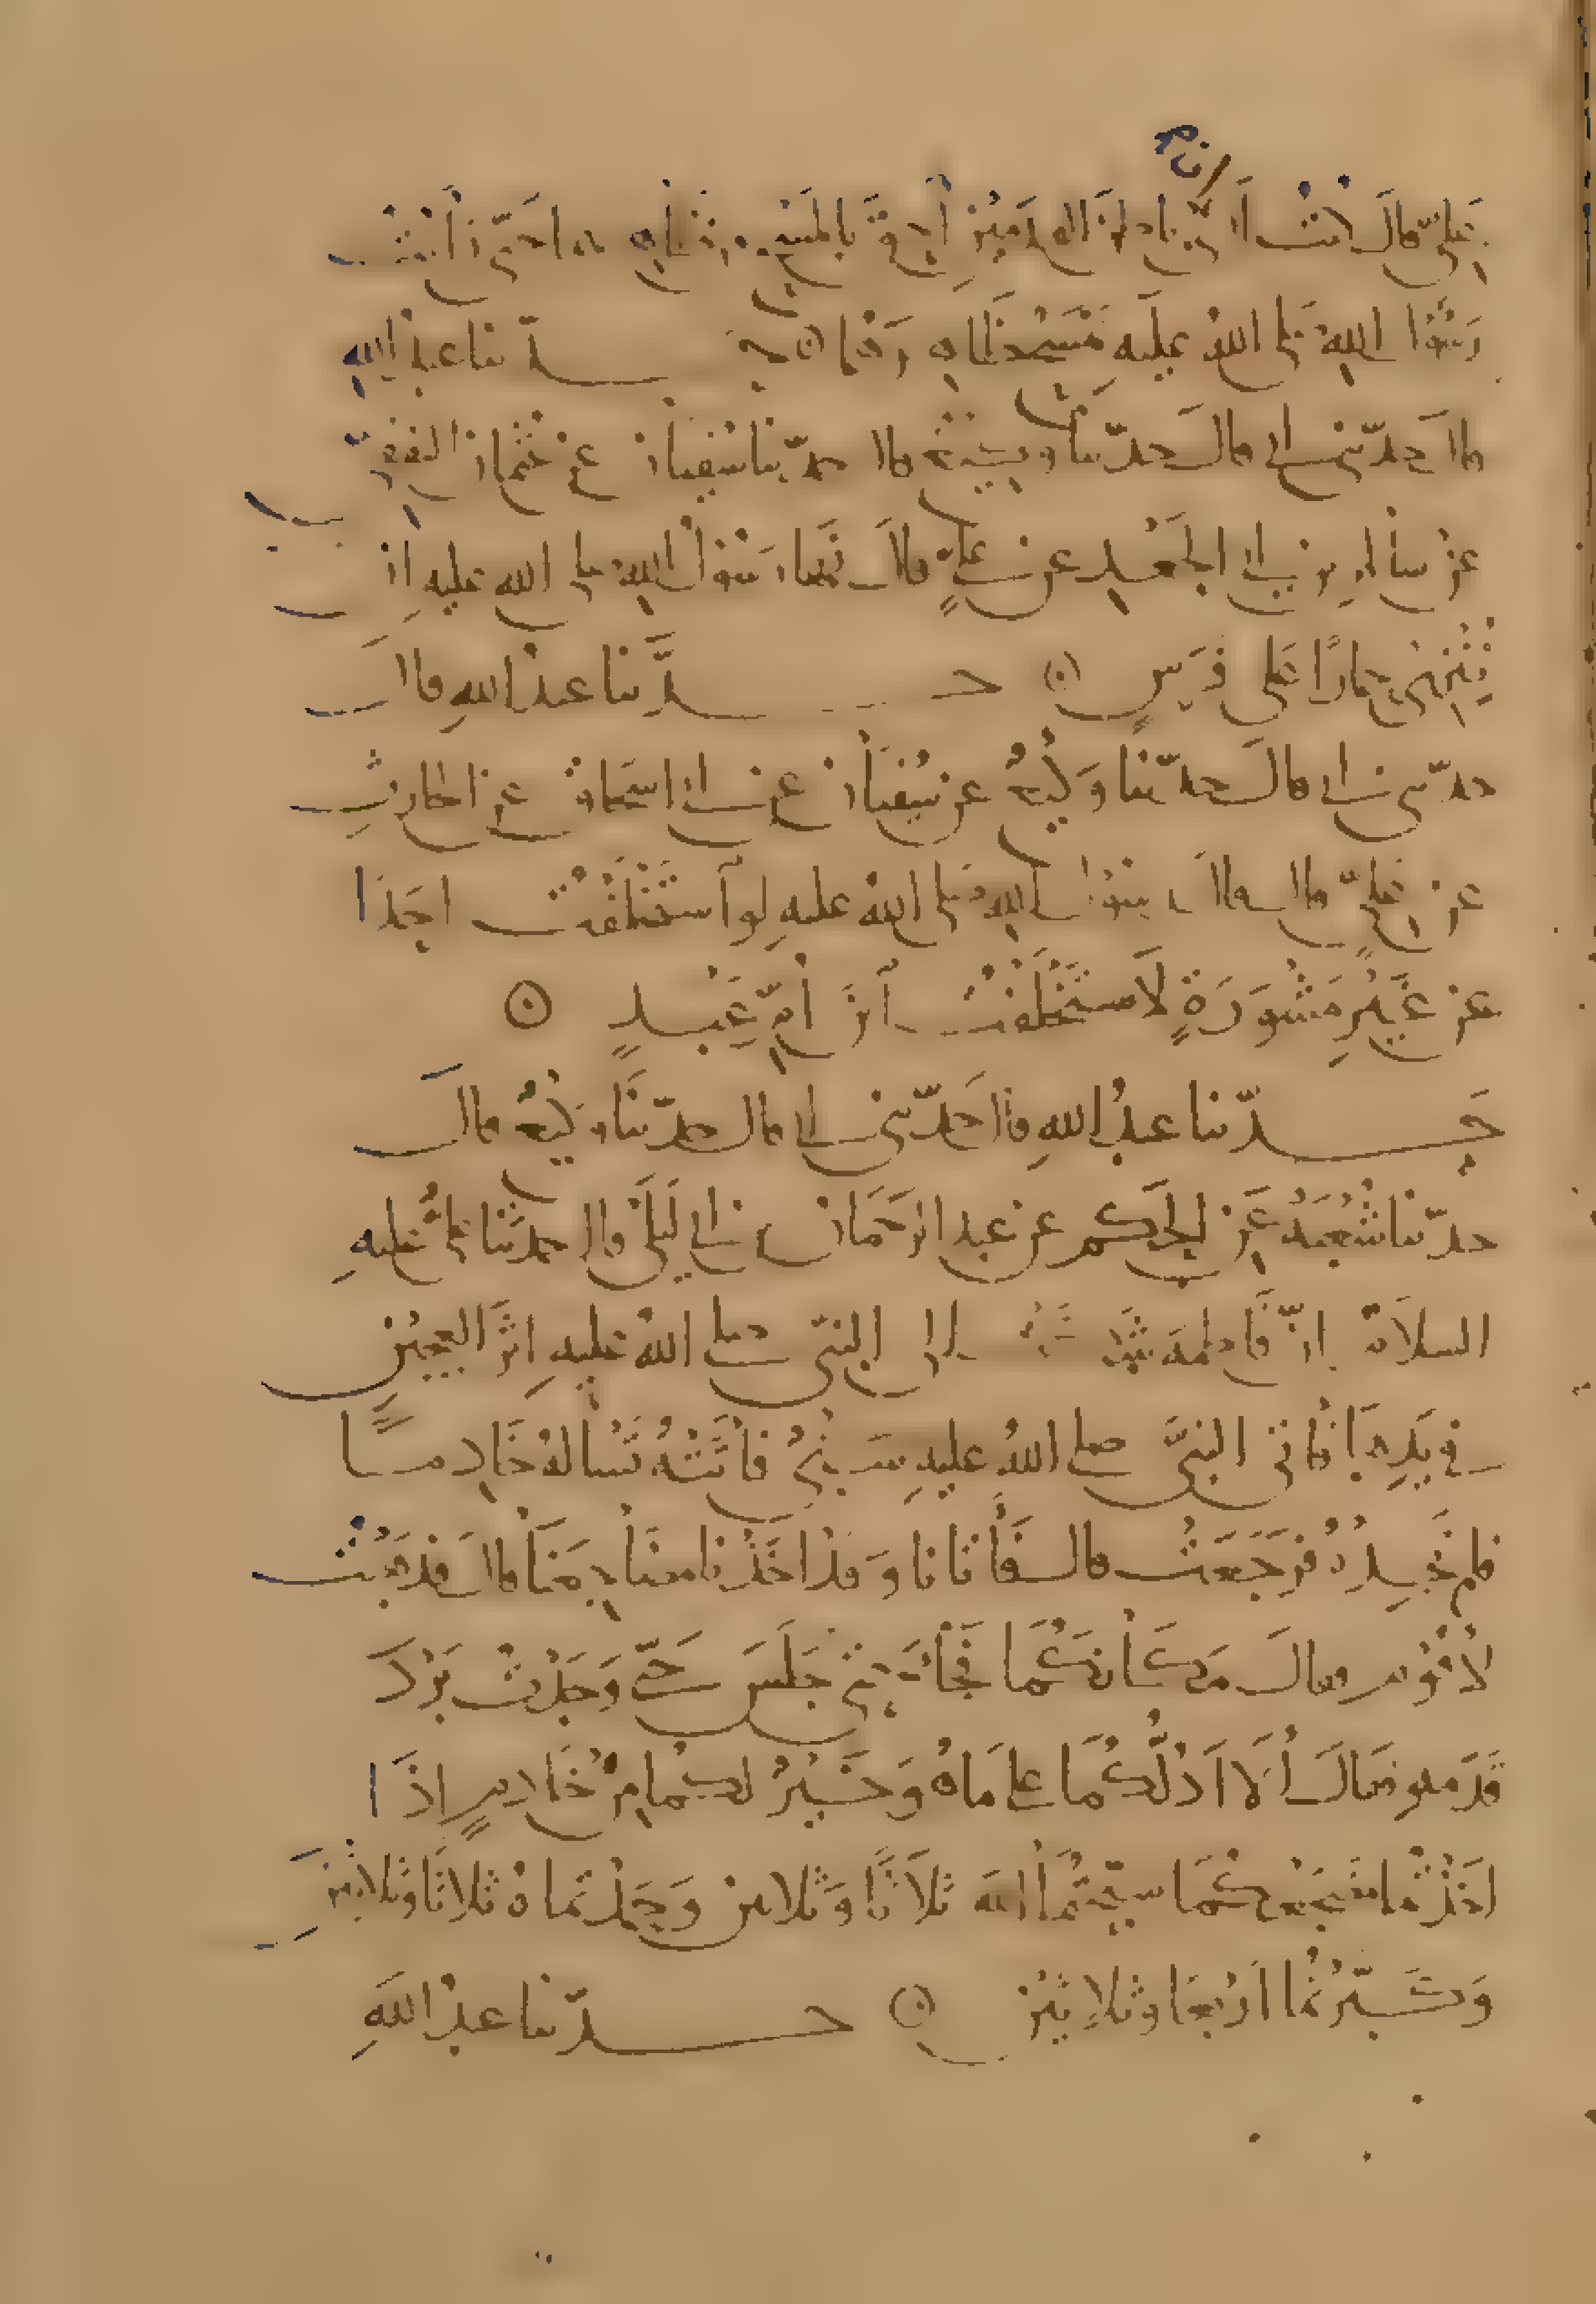 انهم
علي قال كنت أرى ان باطن القدمين أحق بالمسح من ظاهرهما حتى رأيت
رسول الله صلى الله عليه مسح ظاهرهما ۞ حدثنا عبد الله
قال حدثني أبي قال حدثنا وكيع قال حدثنا سفيان عن عثمان الثقفي
عن سالم بن أبي الجعد عن علي قال نهانا رسول الله صلى الله عليه ان
ننزي حمارا على فرس ۞ حدثنا عبد الله قال
حدثني أبي قال حدثنا وكيع عن سفيان عن أبي اسحاق عن الحارث
عن علي قال قال رسول الله صلى الله عليه لو استخلفت احدا
عن غير مشورة لاستخلفت ابن أم عبد ۞
حدثنا عبد الله قال حدثني أبي قال حدثنا وكيع قال
حدثنا شعبة عن الحكم عن عبد الرحمان بن أبي ليلى قال حدثنا علي عليه
السلام ان فاطمة شكت إلى النبي صلى الله عليه اثر العجين
في يديها فاتى النبي صلى الله عليه سبي فأتته تسأله خادما
فلم تجده فرجعت قال فأتانا وقد اخذنا مضاجعنا قال فذهبت
لأقوم فقال مكانكما فجاء حتى جلس حتى وجدت برد
قدميه فقال ألا أدلكما على ما هو خير لكما من خادم اذا
اخذتما مضجعكما سبحتما الله ثلاثا وثلاثين وحمدتماه ثلاثا وثلاثين
وكبرتما أربعا وثلاثين ۞ حدثنا عبد الله